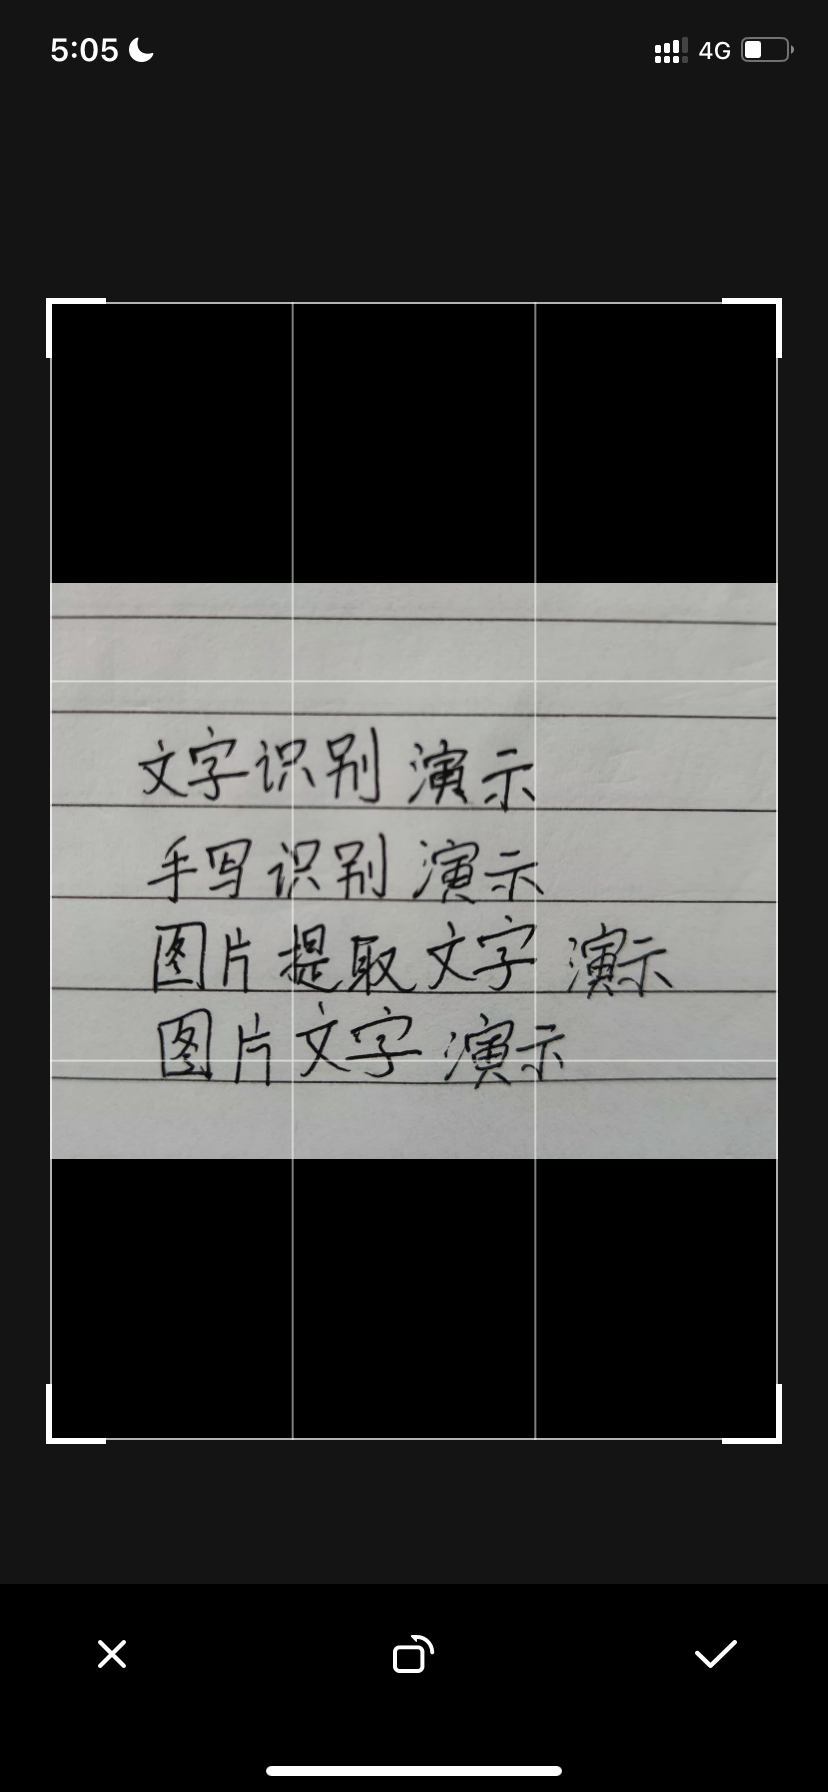 5:05
4G
文字识别 演示
手写识别 演示
图片提取文字 演示
图片文字 演示